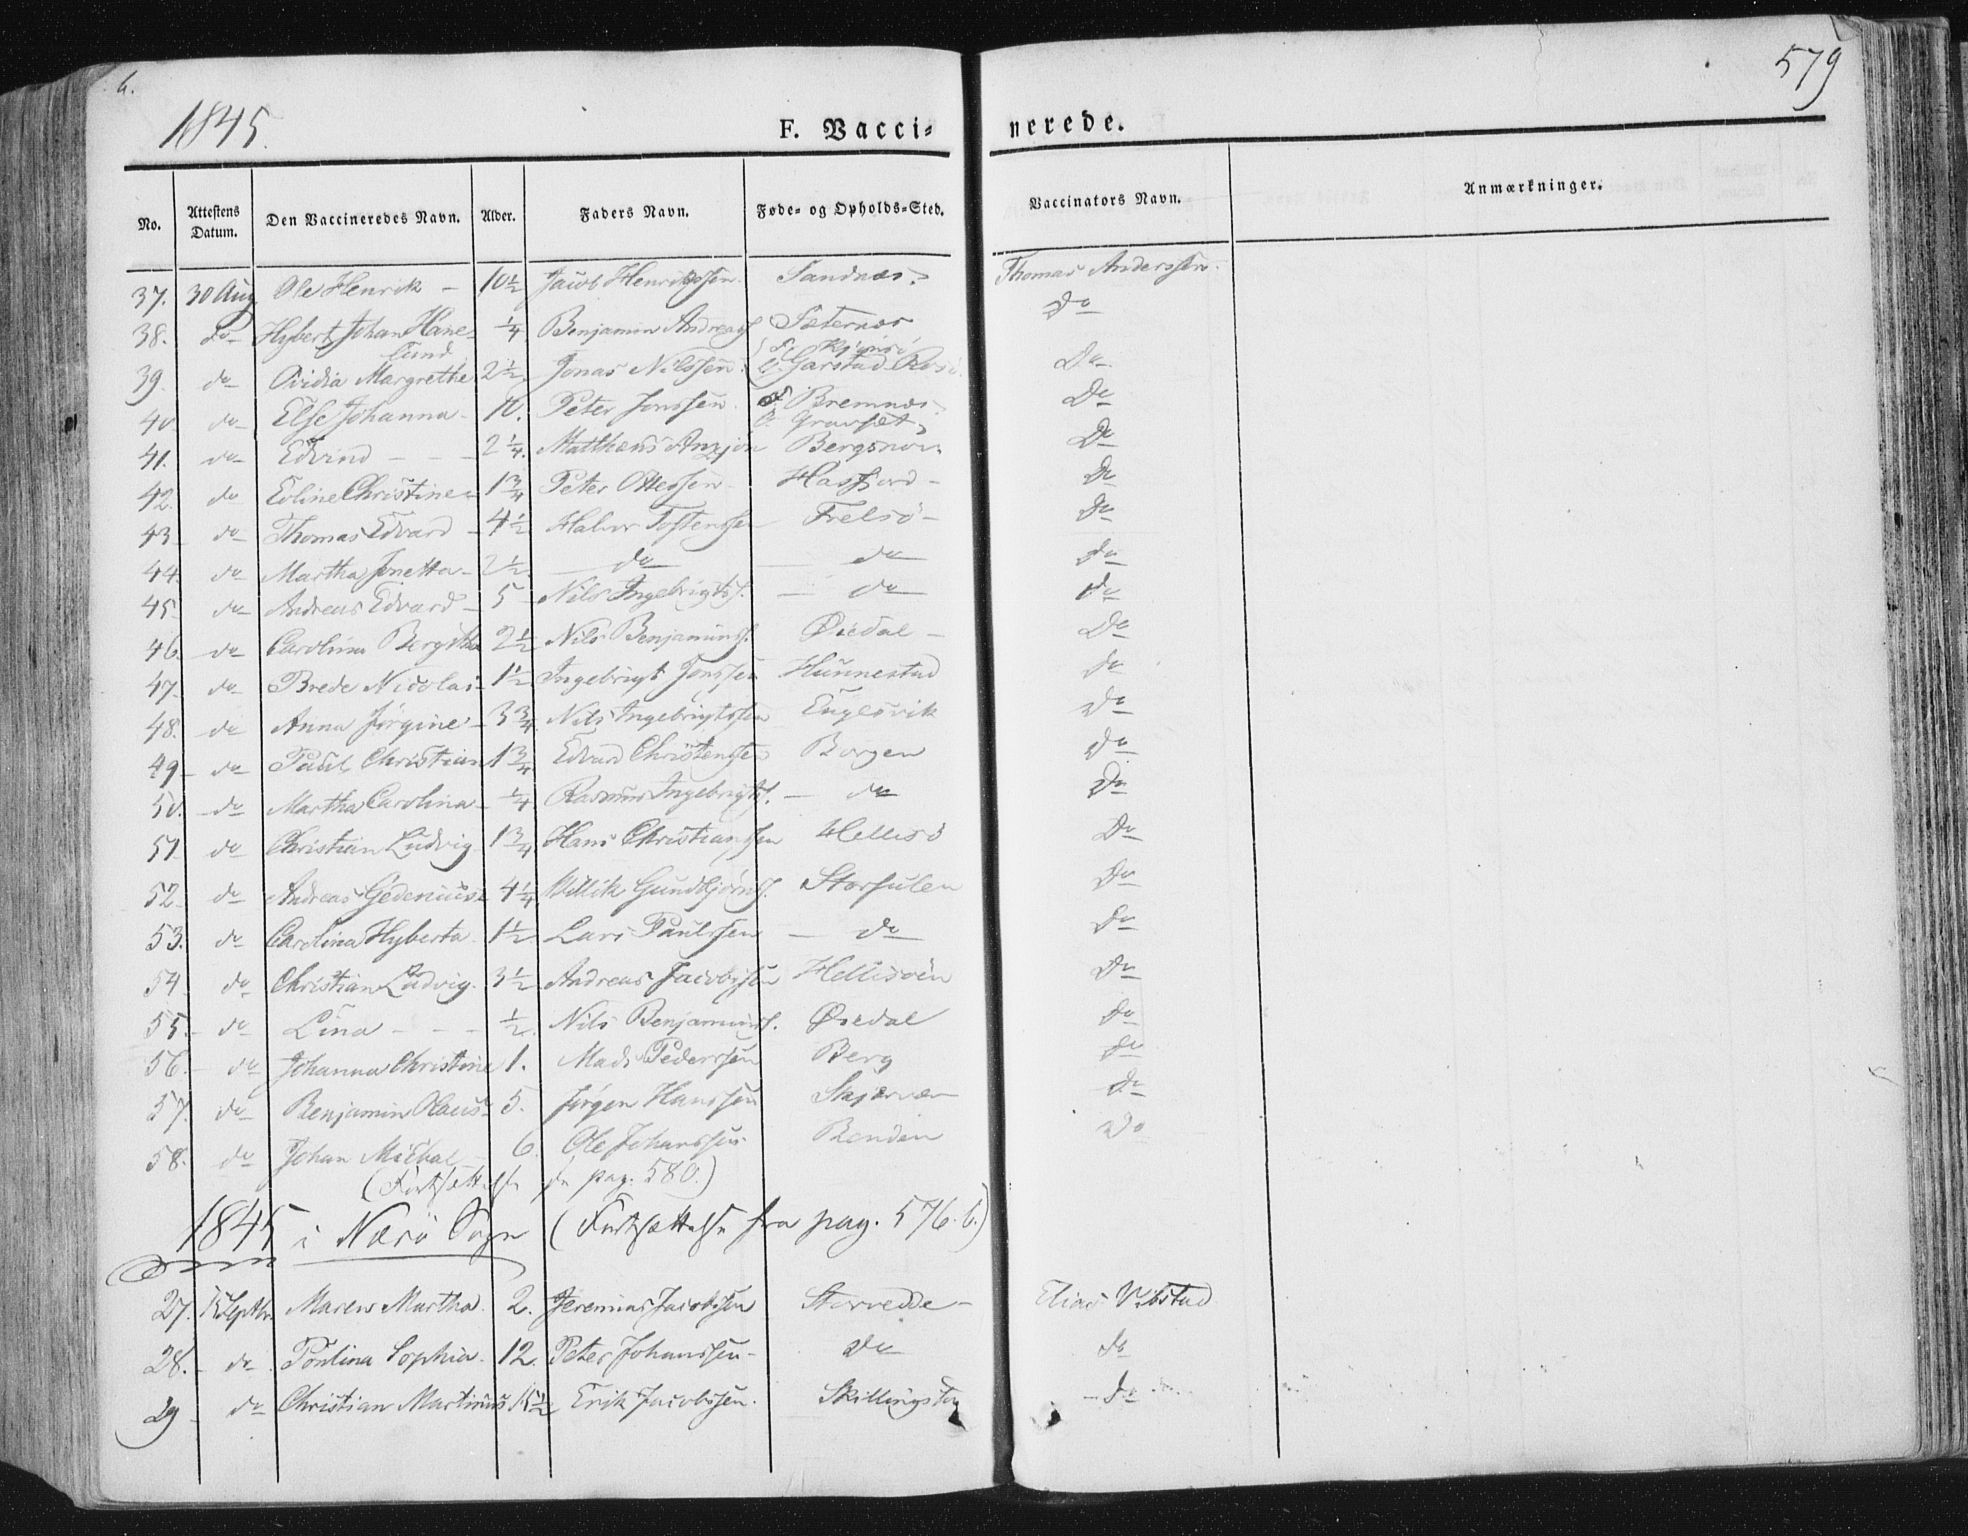 6.
579
1845.
F. Vacci-nerede.
No. Attestens Datum. Den Vaccineredes Navn. Alder. Faders Navn. Føde- og Opholds-Sted. Vaccinators Navn. Anmærkninger.
37. 30 Aug Ole Henrik - 10½ Jacob Henrikssen Sandnæs Thomas Anderssen
38. do Hybert Johan Hane- ¼ Benjamin Andreass Sæternæs Do
lund
39. do Ovidia Margrethe 2½ Jonas Nilssen Garstad Do
40 do Else Johanna - 10. Peter Jonssen Bremnæs Do
Gravset
41. do Edvind - - - 2¼ Matthæus Bergsnov Do
42. do Eoline Christine 1¾ Peter Ottessen Hasfjord - Do
43 do Thomas Edvard - 4½ Halvor Tostenssen Frelsö - Do
44 do Martha Jonetta - 2½ do do do
45 do Andreas Edvard - 5 Nils Ingebrigts. do do
46. do Carolina Bergitha 2½ Nils Benjamins. Øiedal - Do
47. do Brede Nicolai - 1½ Ingebrigt Jonssen Hunnestad do
48. do Anna Jørgine - 3¾ Nils Ingebrigtssen Englesvik Do
49 - do Paul Christian 1¾ Edvard Christenssen Borgen Do
50. do Martha Carolina - ¼ Rasmus Ingebrigts. - do Do
51 do Christian Ludvig 1¾ Hans Christianssen Hellisö Do
52. do Andreas 4¼ Villik Gundbjørns. Storsulen Do
53. do Carolina Hyberta 1½ Lars Paulssen - do do
54 do Christian Ludvig 3½ Andreas Jacobssen Hellisöen Do
55. - do Lina - - - ½ Nils Benjamins. Øiedal do
56. - do Johanna Christine 1. Mads Pederssen Berg do
57. do Benjamin Olaus - 5. Jørgen Hanssen Skjærvær do
58. do Johan Michal 6. Ole Johanssen Renden Do
(Fortsættelse se pag. 580.)
1845 i Nærö Sogn (Fortsættelse fra pag. 576. b.)
27. Septbr Maren Martha. 2. Jeremias Jacobssen Storvedde - Elias Vibstad
28. - do Pontina Sophia. 12. Peter Johanssen - Do do
29 - do Christian Martinus 15½ Erik Jacobssen. Skillingsta - do